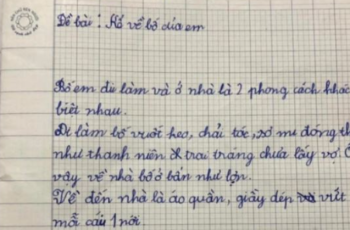 Đề bài : Kể về bố của em
Bố em đi làm và ở nhà là 2 phong cách khác
biệt nhau.
Đi làm bố vuốt keo, chải tóc, sơ mi đóng th
như thanh niên & trai tráng chưa lấy vợ.
vậy về nhà bố ở bẩn như lợn.
Về đến nhà là áo quần, giầy dép vứt
mỗi cái 1 nơi.